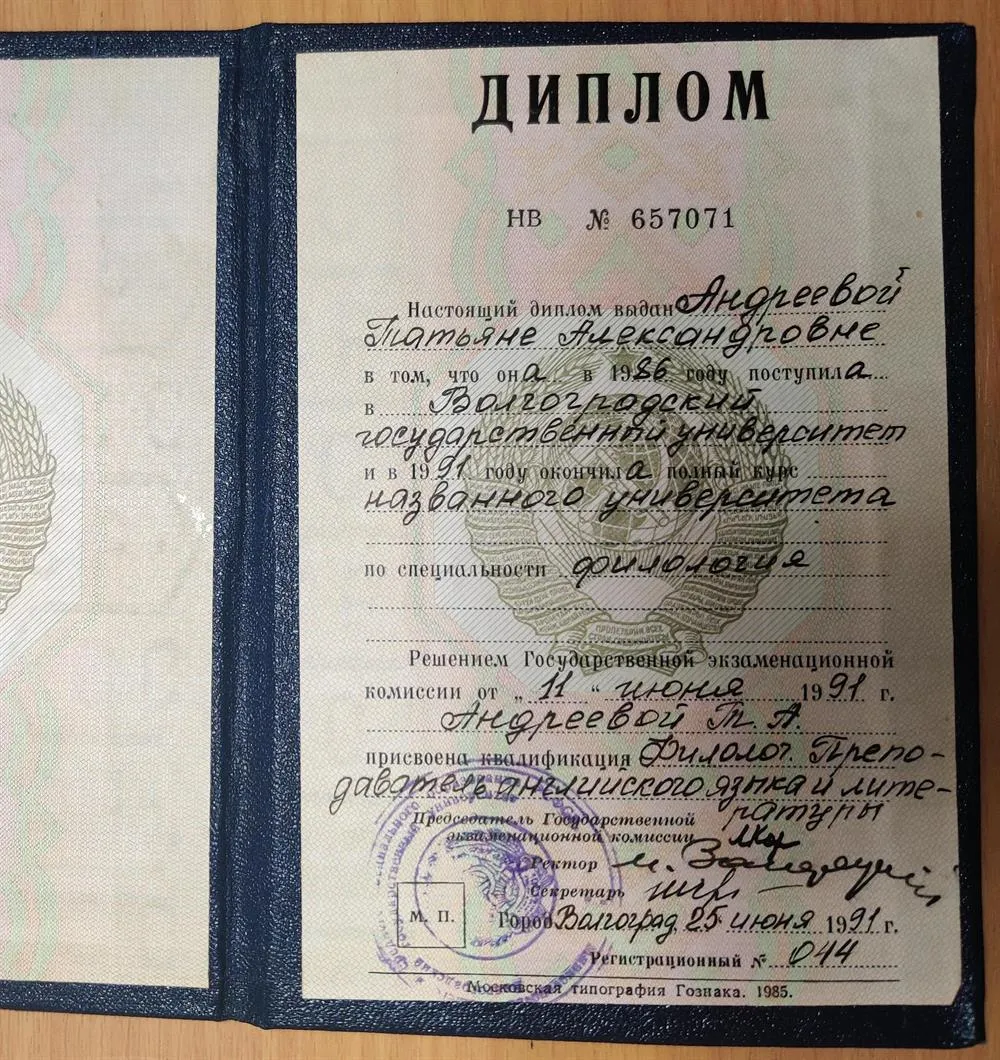 ДИПЛОМ
НВ № 657071
Настоящий диплом выдан Андреевой
Татьяне Александровне
в том, что она в 1986 году поступила
в Волгоградский
государственный университет
и в 1991 году окончила полный курс
названного университета
по специальности филология
ПРОЛЕТАРИИ ВСЕХ
СТРАН, СОЕДИНЯЙТЕСЬ!
Решением Государственной экзаменационной
комиссии от „ 11 “ июня 1991 г.
Андреевой Т. А.
присвоена квалификация Филолог. Препо-
даватель английского языка и лите-
ратуры
Председатель Государственной
экзаменационной комиссии
Ректор
Секретарь
М. П.
Город Волгоград, 25 июня 1991 г.
Регистрационный № 044
Московская типография Гознака. 1985.